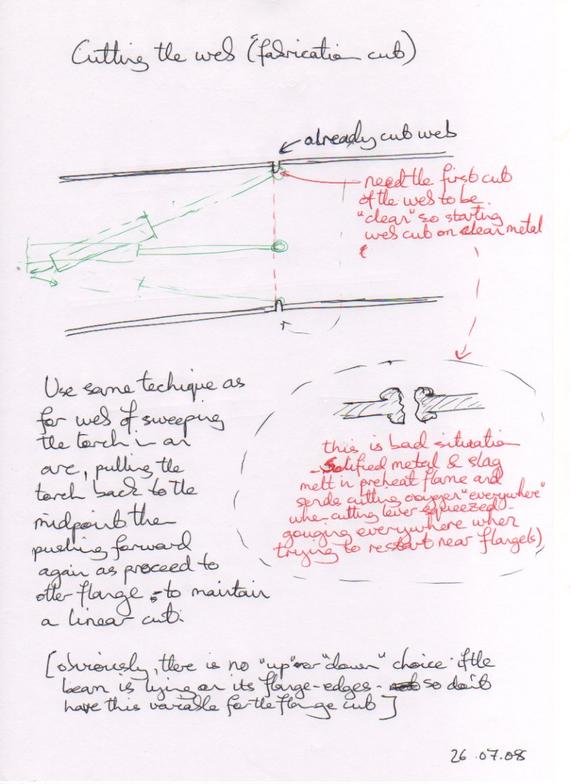 Cutting the web (fabrication cut)
already cut web
need the first cut
of the web to be
"clear" so starting
web cut on clear metal
Use same techique as
for web of sweeping
the torch in an
arc, pulling the
torch back to the
midpoint then
pushing forward
again as proceed to
other flange - to maintain
a linear cut.
this is bad situation
- Solified metal & slag
melt in preheat flame and
sends cutting oxygen "everywhere"
when cutting lever squeezed -
gouging everywhere when
trying to restart near flange(s)
[obviously, there is no "up" or "down" choice if the
beam is lying on its flange-edges - so don't
have this variable for the flange cut]
26.07.08